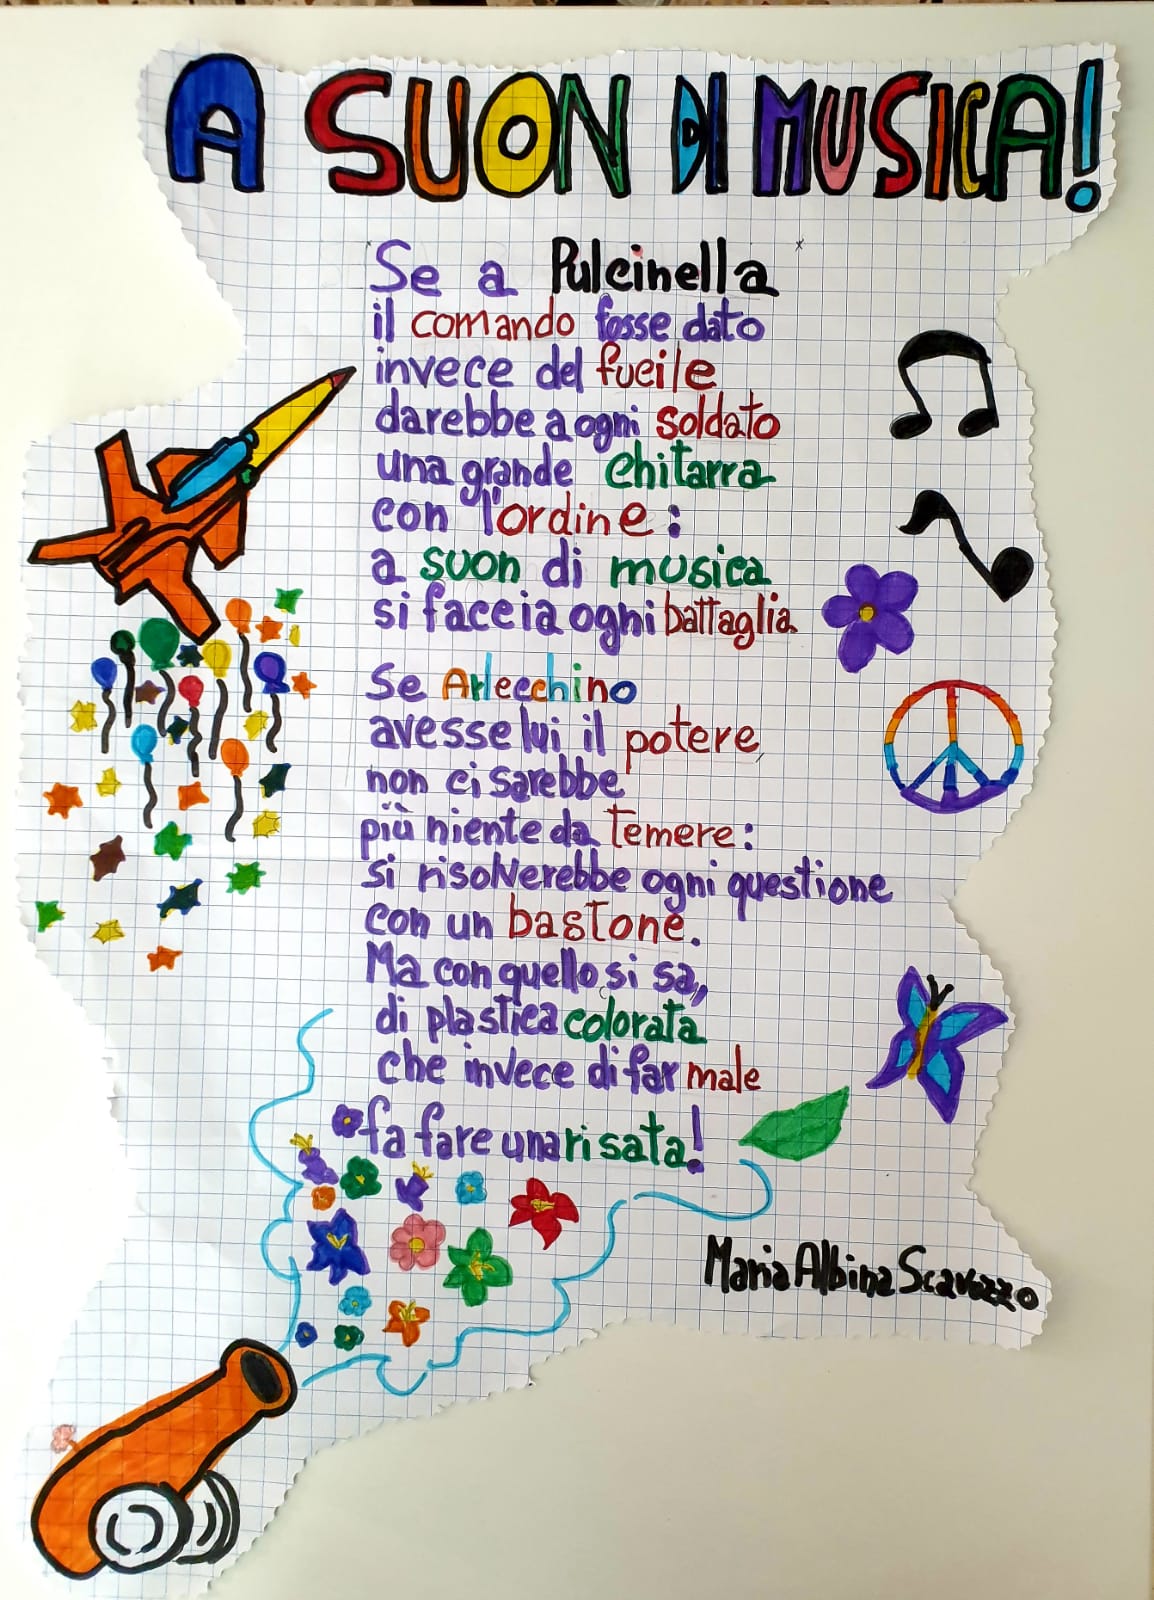 A SUON DI MUSICA!
Se a Pulcinella
il comando fosse dato
invece del fucile
darebbe a ogni soldato
una grande chitarra
con l'ordine:
a suon di musica
si faccia ogni battaglia.
Se Arlecchino
avesse lui il potere,
non ci sarebbe
più niente da temere:
si risolverebbe ogni questione
con un bastone.
Ma con quello, si sa,
di plastica colorata
che invece di far male
fa fare una risata!
Maria Albina Scavuzzo